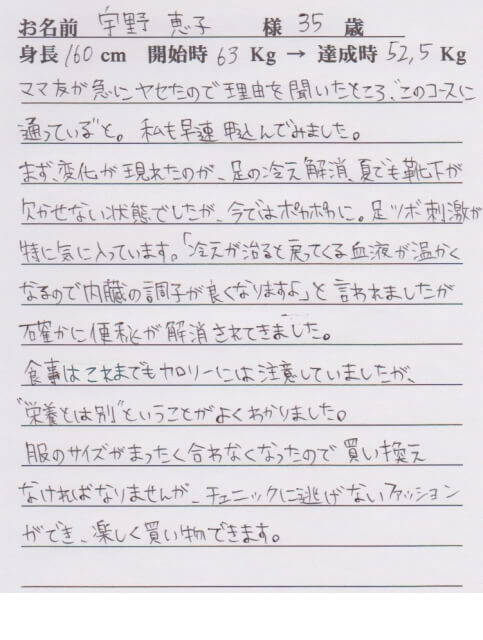 お名前 宇野 恵子 様 35 歳
身長 160 cm 開始時 63 Kg → 達成時 52,5 Kg
ママ友が急にヤセたので理由を聞いたところ、"このコースに
通っている"と。私も早速申込んでみました。
まず、変化が現れたのが、足の冷え解消、夏でも靴下が
欠かせない状態でしたが、今ではポカポカに。足ツボ刺激が
特に気に入っています。「冷えが治ると戻ってくる血液が温かく
なるので内臓の調子が良くなりますよ」と言われましたが
確かに便秘が解消されてきました。
食事はこれまでもカロリーには注意していましたが、
"栄養とは別"ということがよくわかりました。
服のサイズがまったく合わなくなったので買い換え
なければなりませんが、チュニックに逃げないファッション
ができ、楽しく買い物できます。